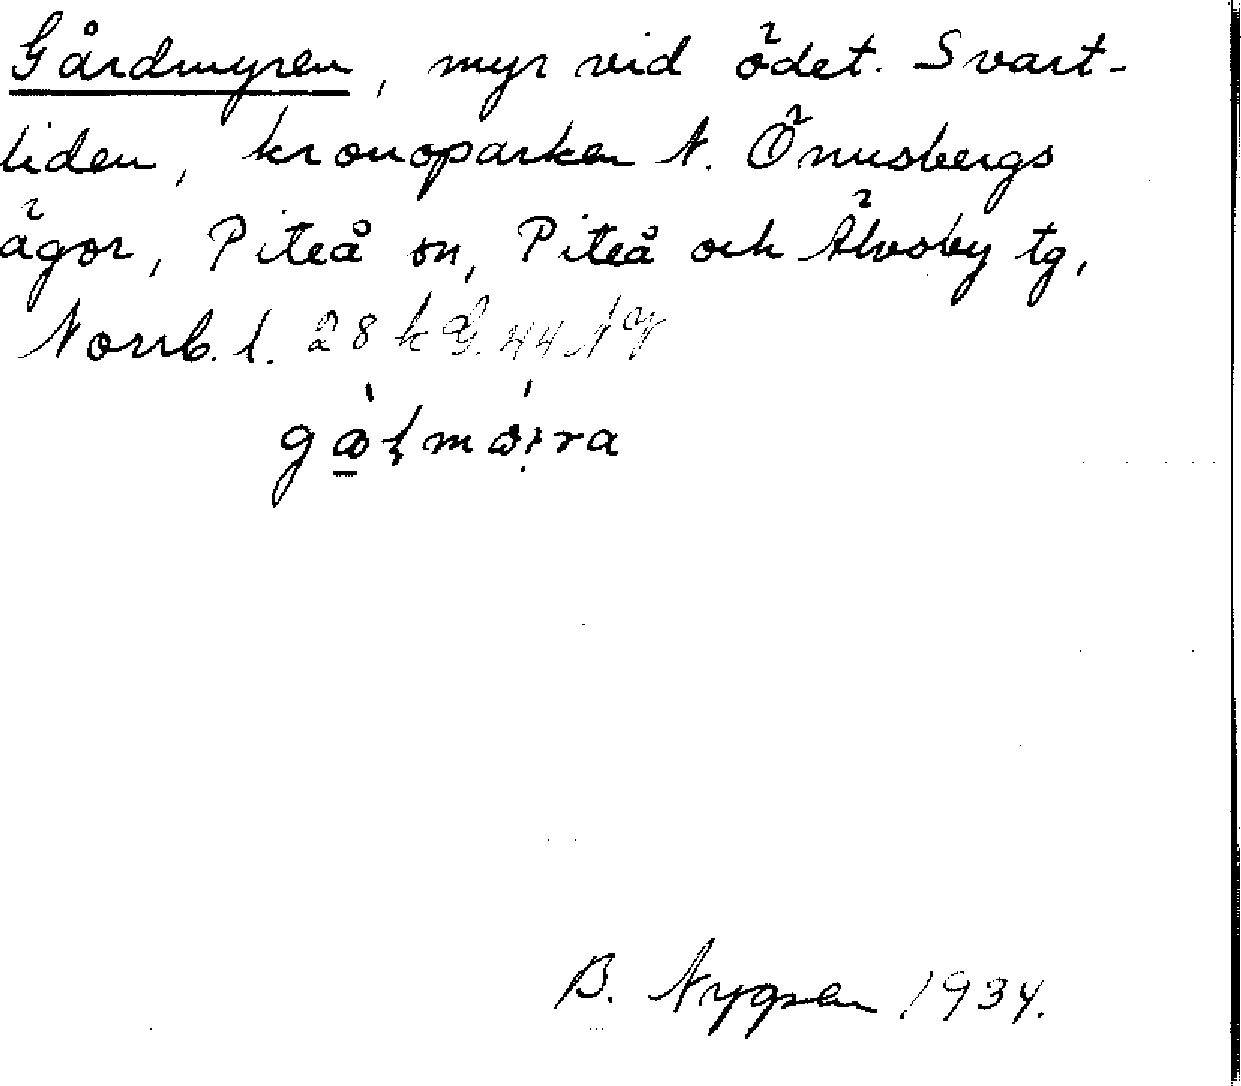 Gårdmyren, myr vid ödet. Svart-
liden, kronoparken N. Önusbergs
ägor, Piteå sn, Piteå och Älvsby tg,
Norrb. l. 28 k
B. Nygren 1934.